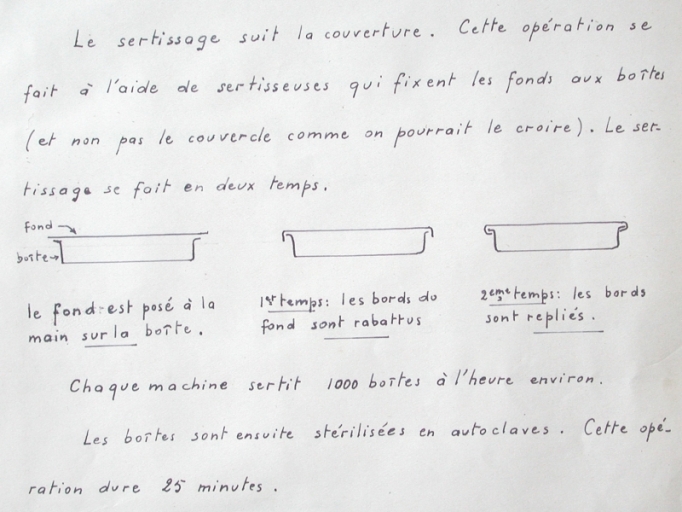 Le sertissage suit la couverture. Cette opération se
fait à l'aide de sertisseuses qui fixent les fonds aux boîtes
(et non pas le couvercle comme on pourrait le croire). Le ser-
tissage se fait en deux temps.
fond
boîte
le fond est posé à la
main sur la boîte.
1er temps: les bords du
fond sont rabattus
2ème temps: les bords
sont repliés.
Chaque machine sertit 1000 boîtes à l'heure environ.
Les boîtes sont ensuite stérilisées en autoclaves. Cette opé-
ration dure 25 minutes.